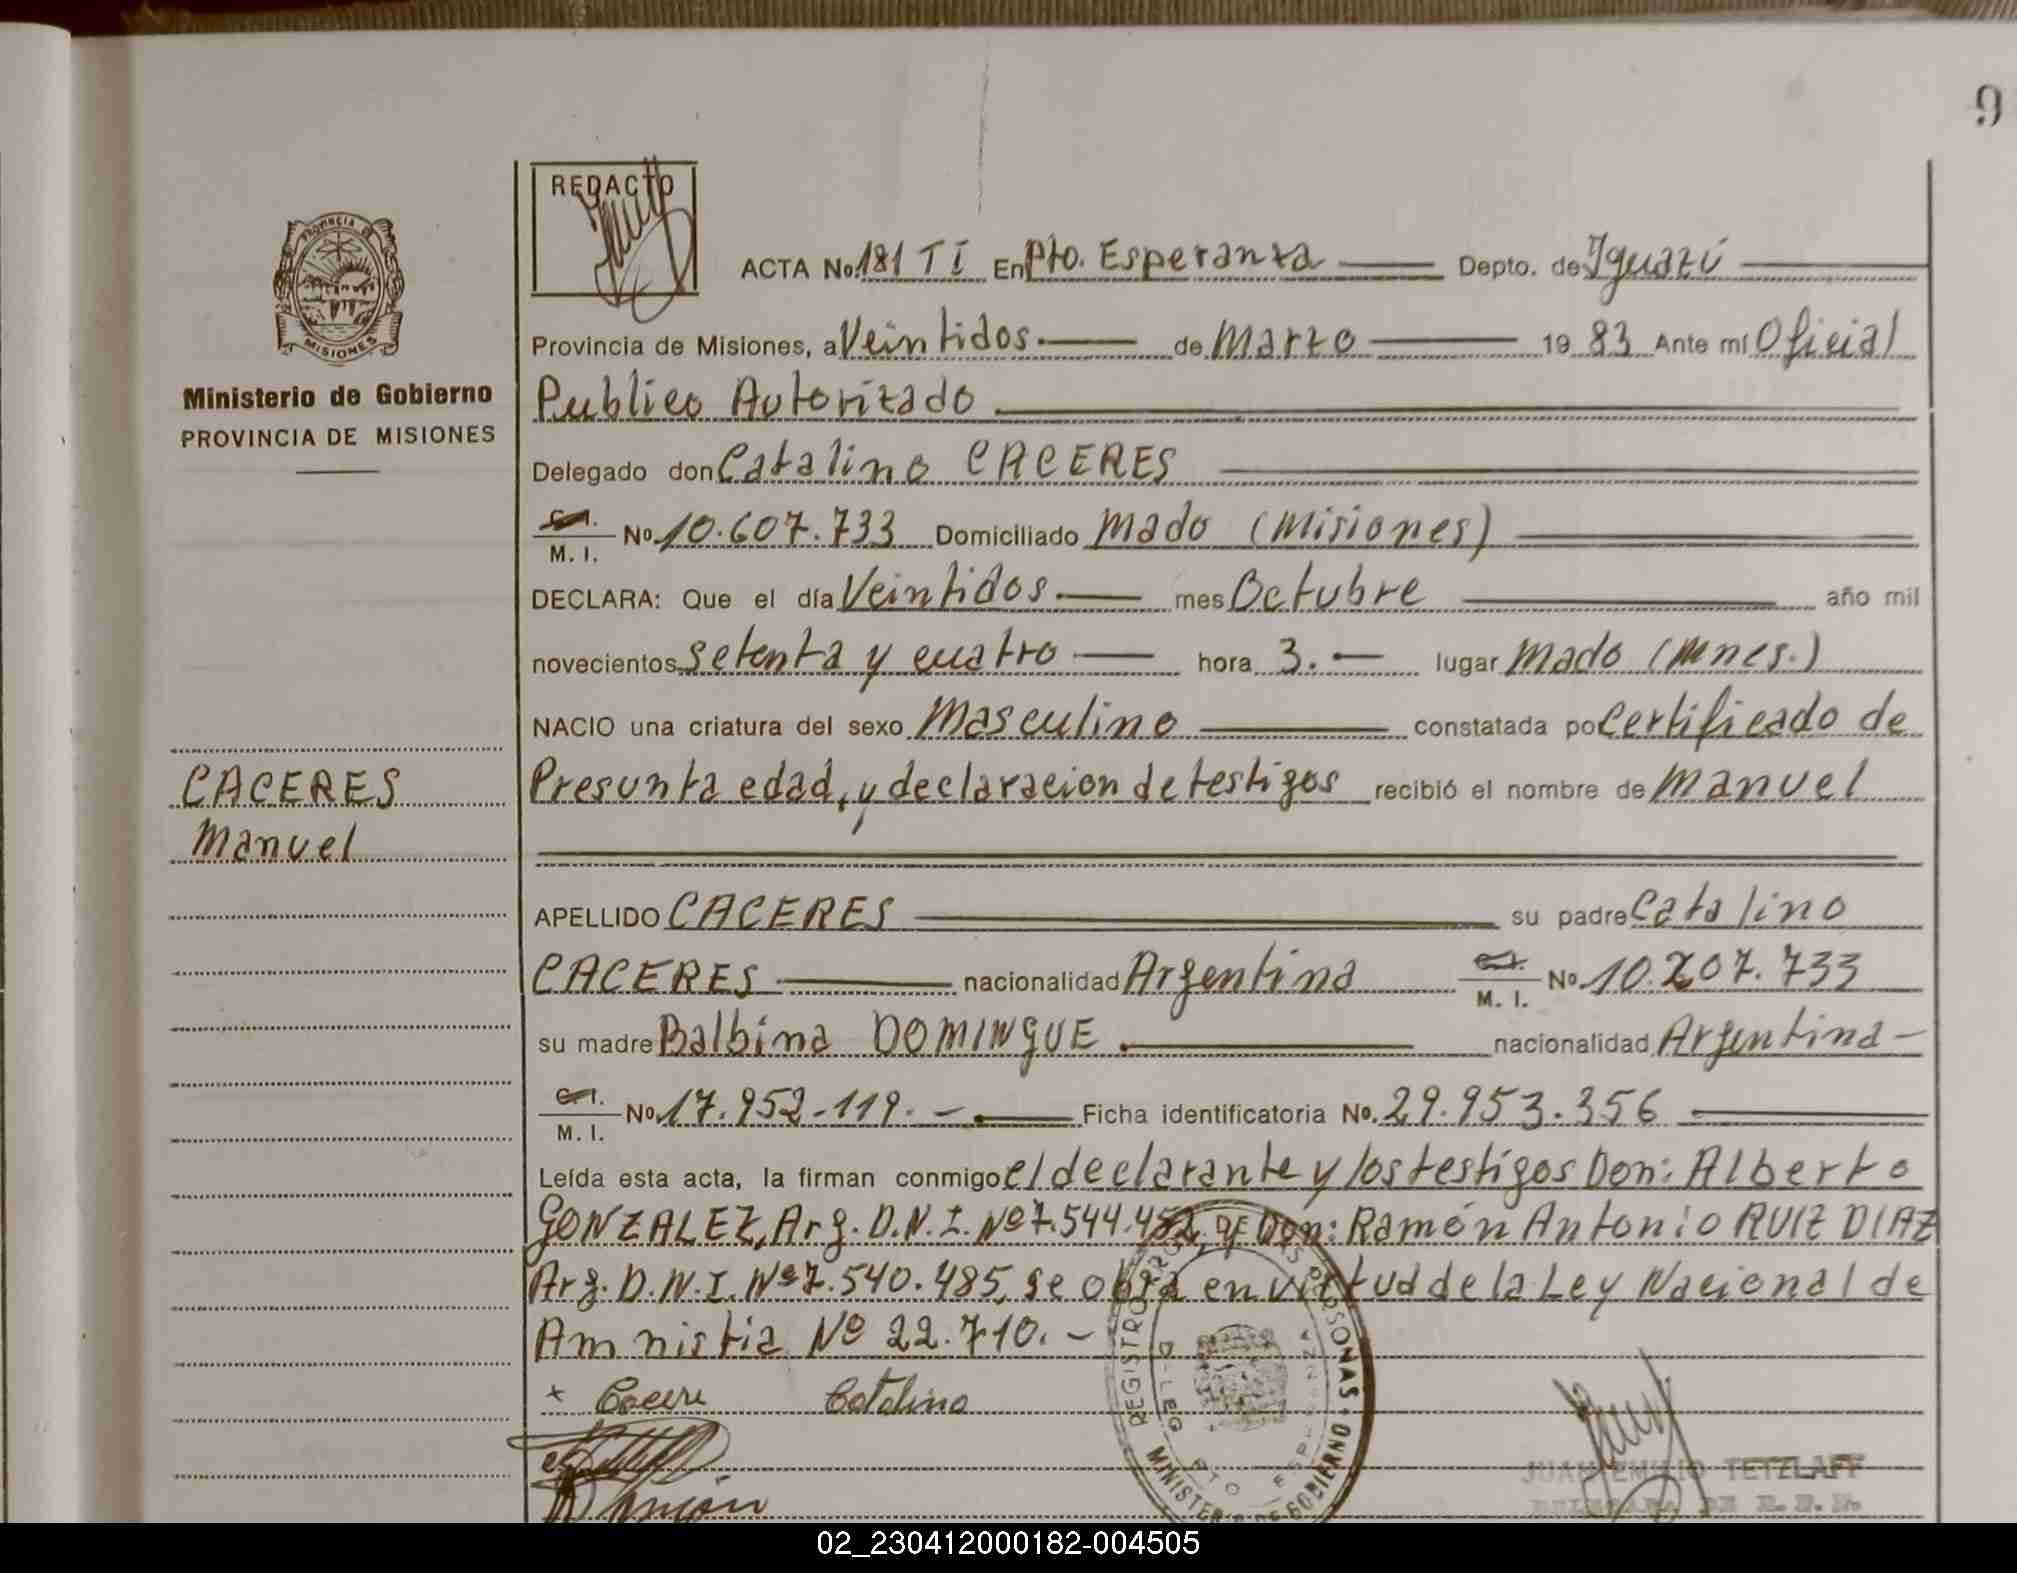 9
REDACTO
PROVINCIA D
MISIONES
Ministerio de Gobierno
PROVINCIA DE MISIONES
ACTA No. 181 TI En Pto. Esperanza Depto. de Iguazú
Provincia de Misiones, a Veintidos de Marzo 19 83 Ante mí Oficial
Publico Autorizado
Delegado don Catalino CACERES
C.I. M. I. No. 10.607.733 Domiciliado Mado (Misiones)
DECLARA: Que el día Veintidos mes Octubre año mil
novecientos setenta y cuatro hora 3.- lugar Mado (Mnes.)
NACIO una criatura del sexo Masculino constatada po Certificado de
Presunta edad, y declaracion de testigos recibió el nombre de Manuel
CACERES
Manuel
APELLIDO CACERES su padre Catalino
CACERES nacionalidad Argentina C.I. M. I. No. 10.207.733
su madre Balbina DOMINGUE nacionalidad Argentina-
C.I. M. I. No. 17.952-119.- Ficha identificatoria No. 29.953.356
Leída esta acta, la firman conmigo el declarante y los testigos Don: Alberto
GONZALEZ, Arg. D.N.I. Nº 7.544.452, y Don: Ramón Antonio RUIZ DIAZ
Arg. D.N.I. Nº 7.540.485, se obra en virtud de la Ley Nacional de
Amnistia Nº 22.710.-
x Cacere Catalino
Ramón
REGISTRO DE LAS PERSONAS
MINISTERIO DE GOBIERNO
PTO ESPERANZA
JUAN EMILIO TETZLAFF
02_230412000182-004505